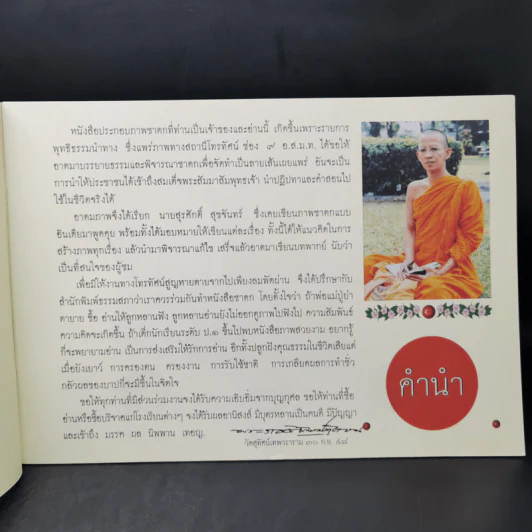 หนังสือประกอบภาพชาดกที่ท่านเป็นเจ้าของและอ่านนี้ เกิดขึ้นเพราะรายการ
พุทธิธรรมนำทาง ซึ่งแพร่ภาพทางสถานีโทรทัศน์ ช่อง ๙ อ.ส.ม.ท. ได้ขอให้
อาตมาบรรยายธรรมและพิจารณาชาดกเพื่อจัดทำเป็นลายเส้นเผยแพร่ อันจะเป็น
การนำให้ประชาชนได้เข้าถึงสมเด็จพระสัมมาสัมพุทธเจ้า นำปฏิปทาและคำสอนไป
ใช้ในชีวิตจริงได้
อาตมภาพจึงได้เรียก นายสุรศักดิ์ สุขจันทร์ ซึ่งเคยเขียนภาพชาดกแบบ
อินเดียมาพูดคุย พร้อมทั้งได้มอบหมายให้เขียนแต่ละเรื่อง ทั้งนี้ได้ให้แนวคิดในการ
สร้างภาพทุกเรื่อง แล้วนำมาพิจารณาแก้ไข เสร็จแล้วอาตมาเขียนบทพากย์ นับว่า
เป็นที่สนใจของผู้ชม
เพื่อมิให้งานทางโทรทัศน์สูญหายตายจากไปเพียงลมพัดผ่าน จึงได้ปรึกษากับ
สำนักพิมพ์ธรรมสภาว่าเราควรร่วมกันทำหนังสือชาดก โดยตั้งใจว่า ถ้าพ่อแม่ปู่ย่า
ตายาย ซื้อ อ่านให้ลูกหลานฟัง ลูกหลานอ่านยังไม่ออกดูภาพไปฟังไป ความสัมพันธ์
ความคิดจะเกิดขึ้น ถ้าเด็กนักเรียนระดับ ป.๑ ขึ้นไปพบหนังสือภาพสวยงาม อยากรู้
ก็จะพยายามอ่าน เป็นการส่งเสริมให้รักการอ่าน อีกทั้งปลูกฝังคุณธรรมในชีวิตเสียแต่
เมื่อยังเยาว์ การครองตน ครองงาน การรับใช้ชาติ การเกลียดผลการทำชั่ว
กลัวผลของบาปก็จะมีขึ้นในจิตใจ
ขอให้ทุกท่านที่มีส่วนร่วมงานจงได้รับความเอิบอิ่มจากบุญกุศล ขอให้ท่านที่ซื้อ
อ่านหรือซื้อบริจาคแก่โรงเรียนต่างๆ จงได้รับผลอานิสงส์ มีบุตรหลานเป็นคนดี มีปัญญา
และเข้าถึง มรรค ผล นิพพาน เทอญ.
วัดสุทัศน์เทพวราราม ๓๐ ก.ย. ๔๘
คำนำ